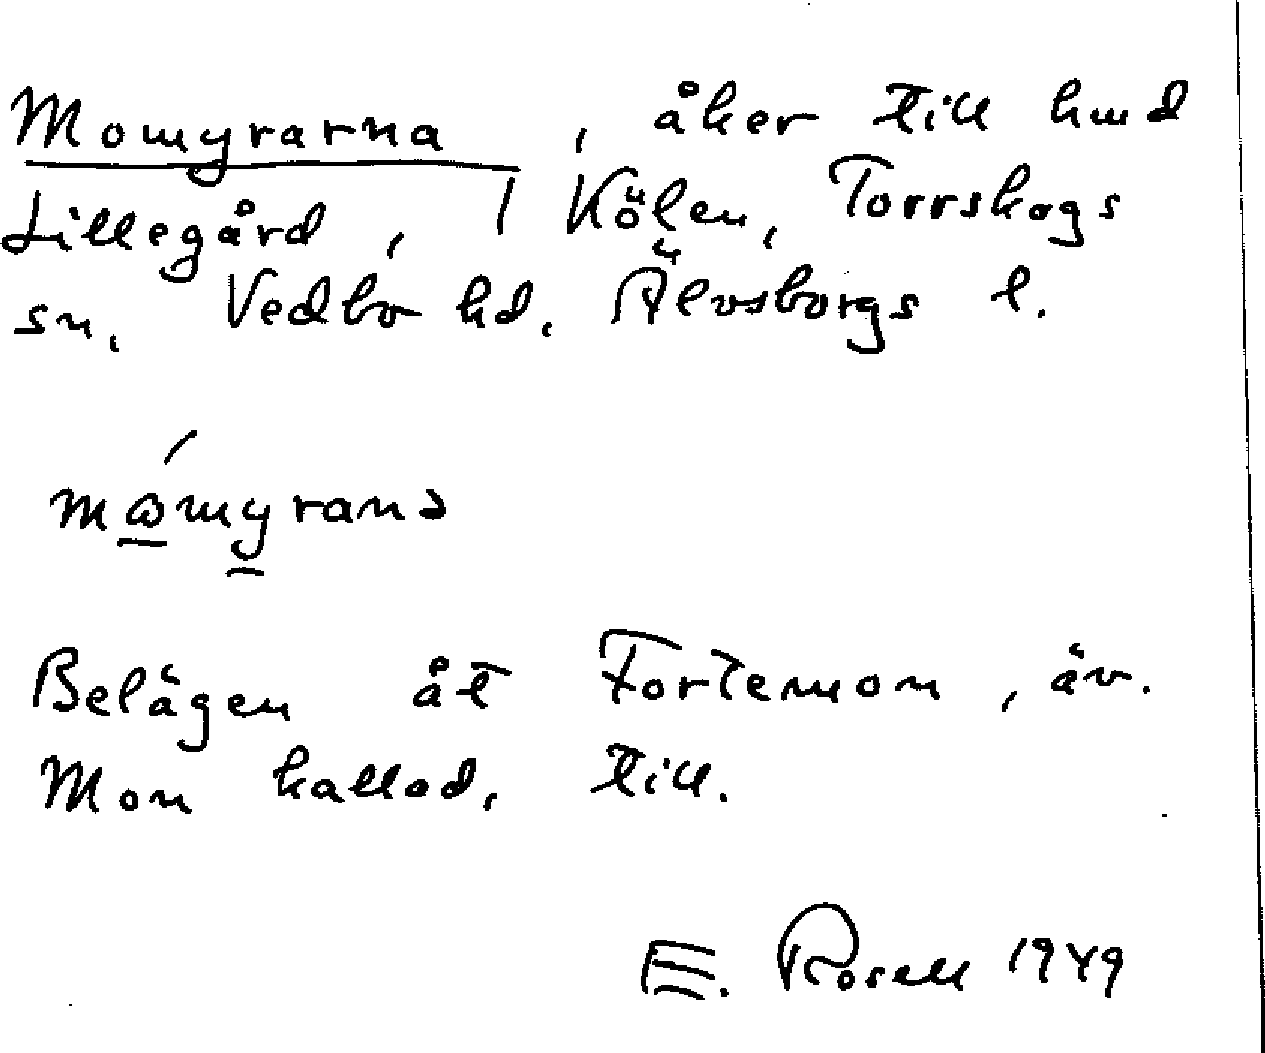 Momyrarna, åker till hmd
Lillegård, 1 Kölen, Torrskogs
sn, Vedbo hd. Älvsborgs l.
Belägen åt Fortemon, äv.
Mon kallad, till.
E. Rosell 1949